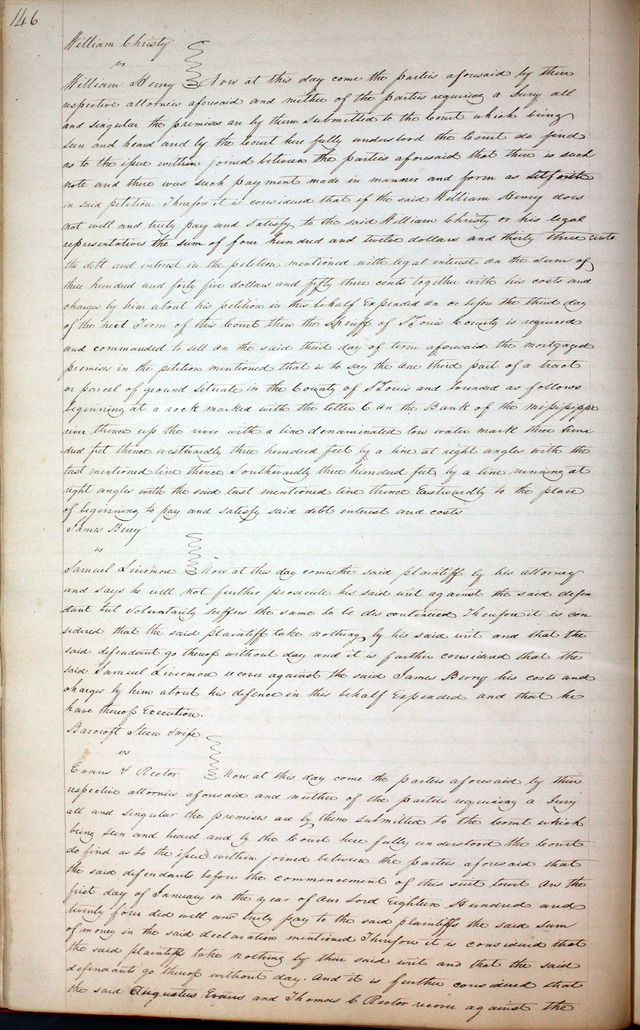 146
William Christy
vs
William Henry Now at this day come the parties aforesaid by their
respective attornies aforesaid and neither of the parties requiring a Jury all
and singular the premises are by them submitted to the Court which being
seen and heard and by the Court here fully understood the Court do find
as to the issue within joined between the parties aforesaid that there is such
note and there was such payment made in manner and form as setforth
in said petition Therefore it is considered that if the said William Henry does
not well and truly pay and satisfy to the said William Christy or his legal
representatives the sum of four hundred and twelve dollars and thirty three cents
the debt and interest in the petition mentioned with legal interest on the sum of
three hundred and forty five dollars and fifty three cents together with his costs and
charges by him about his petition in this behalf Expended on or before the third day
of the next Term of this Court then the Sheriff of St Louis County is required
and commanded to sell on the said third day of term aforesaid the mortgaged
premises in the petition mentioned that is to say the one third part of a tract
or parcel of ground situate in the County of St Louis and bounded as follows
beginning at a rock marked with the letter C on the Bank of the Mississippi
river thence up the river with a line denominated low water mark three hun
dred feet thence westwardly three hundred feet by a line at right angles with the
last mentioned line thence Southwardly three hundred feet by a line running at
right angles with the said last mentioned line thence Eastwardly to the place
of beginning to pay and satisfy said debt interest and costs
James Berry
vs
Samuel Livermore Now at this day comes the said plaintiff by his attorney
and says he will not further prosecute his said writ against the said defen
dant but voluntarily suffers the same to be discontinued Therefore it is con
sidered that the said plaintiff take nothing by his said writ and that the
said defendant go thereof without day and it is further considered that the
said Samuel Livermore recover against the said James Berry his costs and
charges by him about his defence in this behalf Expended and that he
have thereof Execution.
Barcroft Steen & wife
vs
Evans & Rector Now at this day come the parties aforesaid by their
respective attornies aforesaid and neither of the parties requiring a Jury
all and singular the premises are by them submitted to the Court which
being seen and heard and by the Court here fully understood the Court
do find as to the issue within joined between the parties aforesaid that
the said defendants before the commencement of this suit towit On the
first day of January in the year of our Lord Eighteen Hundred and
twenty four did well and truly pay to the said plaintiffs the said sum
of money in the said declaration mentioned Therefore it is considered that
the said plaintiff take nothing by their said writ and that the said
defendants go thereof without day. And it is further considered that
the said Augustus Evans and Thomas C Rector recover against the